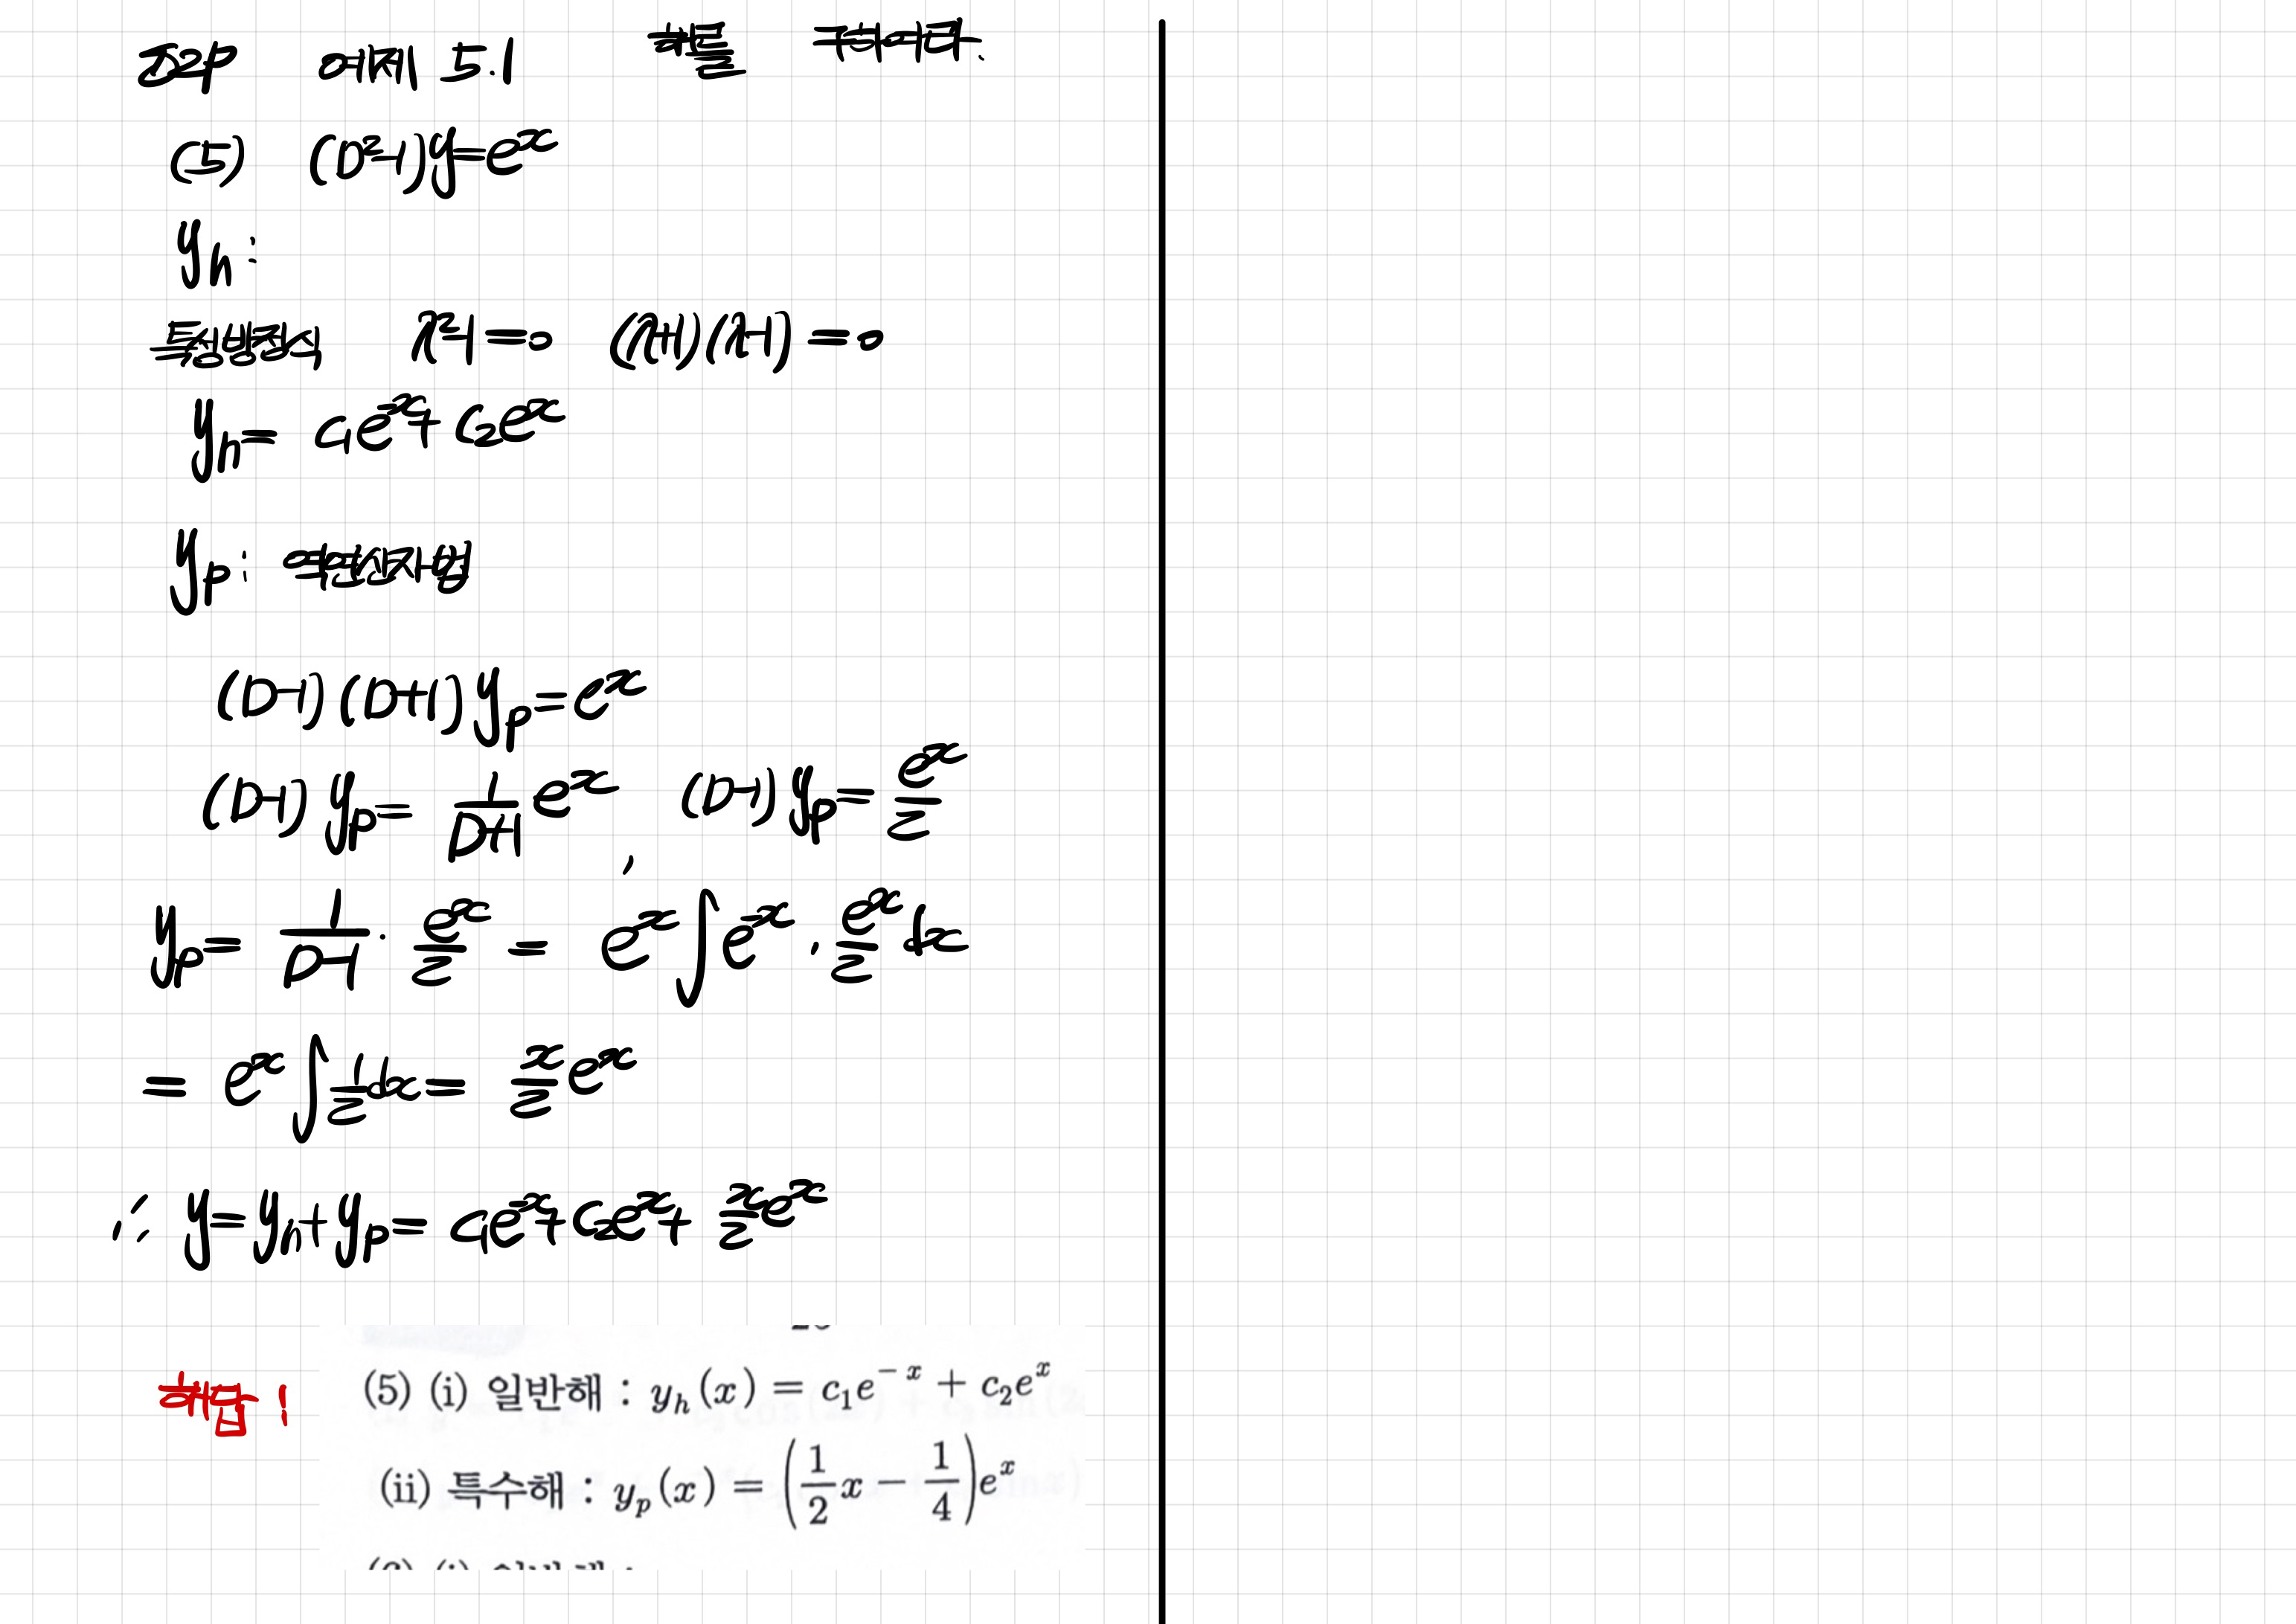 52p 예제 5.1 해를 구하여라.
(5) (D²-1)y=eˣ
yₕ:
특성방정식 λ²-1=0 (λ+1)(λ-1)=0
yₕ= c₁e⁻ˣ+c₂eˣ
yₚ: 역연산자법
(D-1)(D+1)yₚ=eˣ
(D-1)yₚ= 1/(D+1) eˣ, (D-1)yₚ= eˣ/2
yₚ= 1/(D-1) · eˣ/2 = eˣ∫e⁻ˣ · eˣ/2 dx
= eˣ∫1/2 dx = x/2 eˣ
∴ y=yₕ+yₚ= c₁e⁻ˣ+c₂eˣ+ x/2 eˣ
해답!
(5) (i) 일반해 : yₕ(x) = c₁e⁻ˣ + c₂eˣ
(ii) 특수해 : yₚ(x) = (1/2 x − 1/4)eˣ